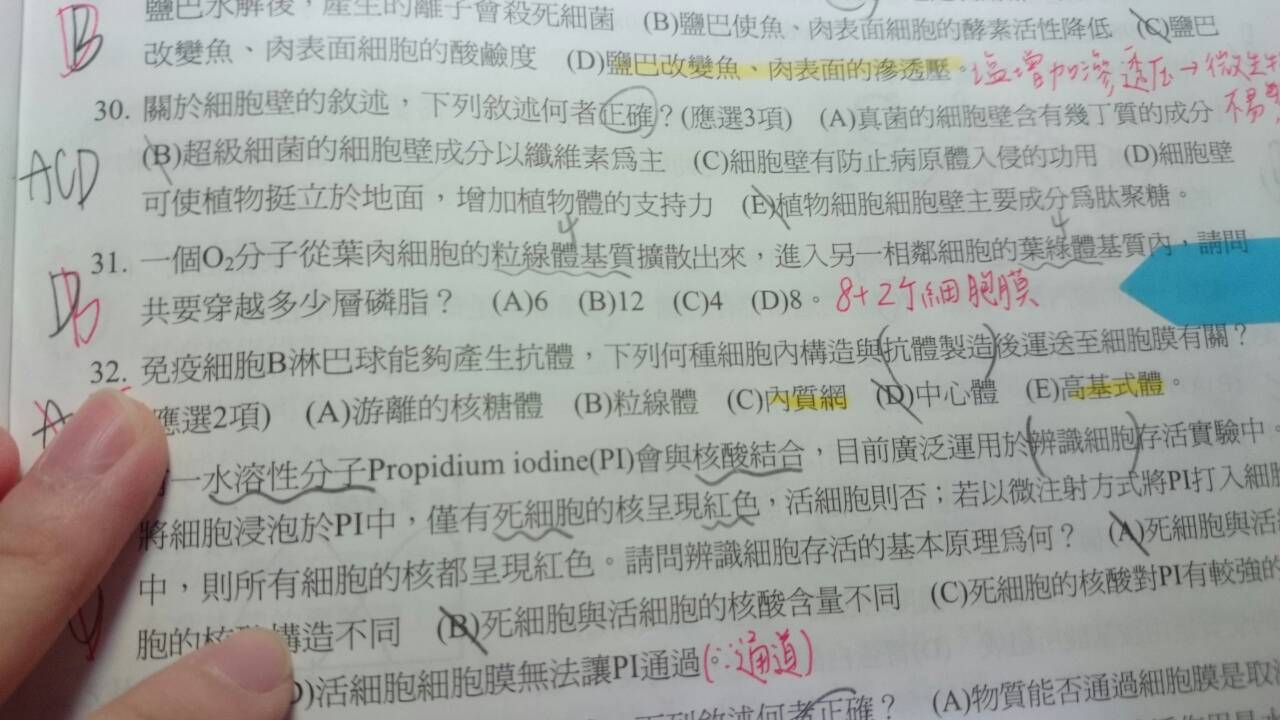 鹽巴水解後，產生的離子會殺死細菌 (B)鹽巴使魚、肉表面細胞的酵素活性降低 (C)鹽巴
B 改變魚、肉表面細胞的酸鹼度 (D)鹽巴改變魚、肉表面的滲透壓。塩增加滲透压→微生
30. 關於細胞壁的敘述，下列敘述何者正確？(應選3項) (A)真菌的細胞壁含有幾丁質的成分 不易
ACD (B)超級細菌的細胞壁成分以纖維素為主 (C)細胞壁有防止病原體入侵的功用 (D)細胞壁
可使植物挺立於地面，增加植物體的支持力 (E)植物細胞細胞壁主要成分為肽聚糖。
4 4
31. 一個O₂分子從葉肉細胞的粒線體基質擴散出來，進入另一相鄰細胞的葉綠體基質內，請問
D B 共要穿越多少層磷脂？ (A)6 (B)12 (C)4 (D)8。 8+2个細胞膜
32. 免疫細胞B淋巴球能夠產生抗體，下列何種細胞內構造與(抗體製造)後運送至細胞膜有關？
A 應選2項) (A)游離的核糖體 (B)粒線體 (C)內質網 (D)中心體 (E)高基式體。
一水溶性分子Propidium iodine(PI)會與核酸結合，目前廣泛運用於(辨識細胞)存活實驗中。
將細胞浸泡於PI中，僅有死細胞的核呈現紅色，活細胞則否；若以微注射方式將PI打入細胞
中，則所有細胞的核都呈現紅色。請問辨識細胞存活的基本原理為何？ (A)死細胞與活
胞的核構造不同 (B)死細胞與活細胞的核酸含量不同 (C)死細胞的核酸對PI有較強的
D)活細胞細胞膜無法讓PI通過。(∵通道)
下列敘述何者正確？ (A)物質能否通過細胞膜是取